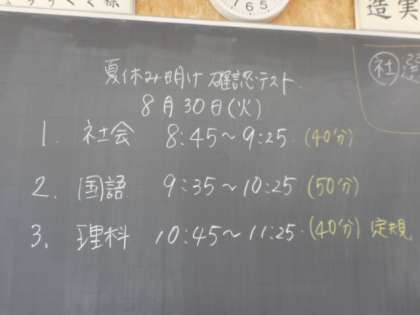 造実
765
社
夏休み明け 確認テスト.
8月30日(火)
1. 社会 8:45～9:25. (40分)
2. 国語 9:35～10:25 (50分)
3. 理科 10:45～11:25. (40分) 定規